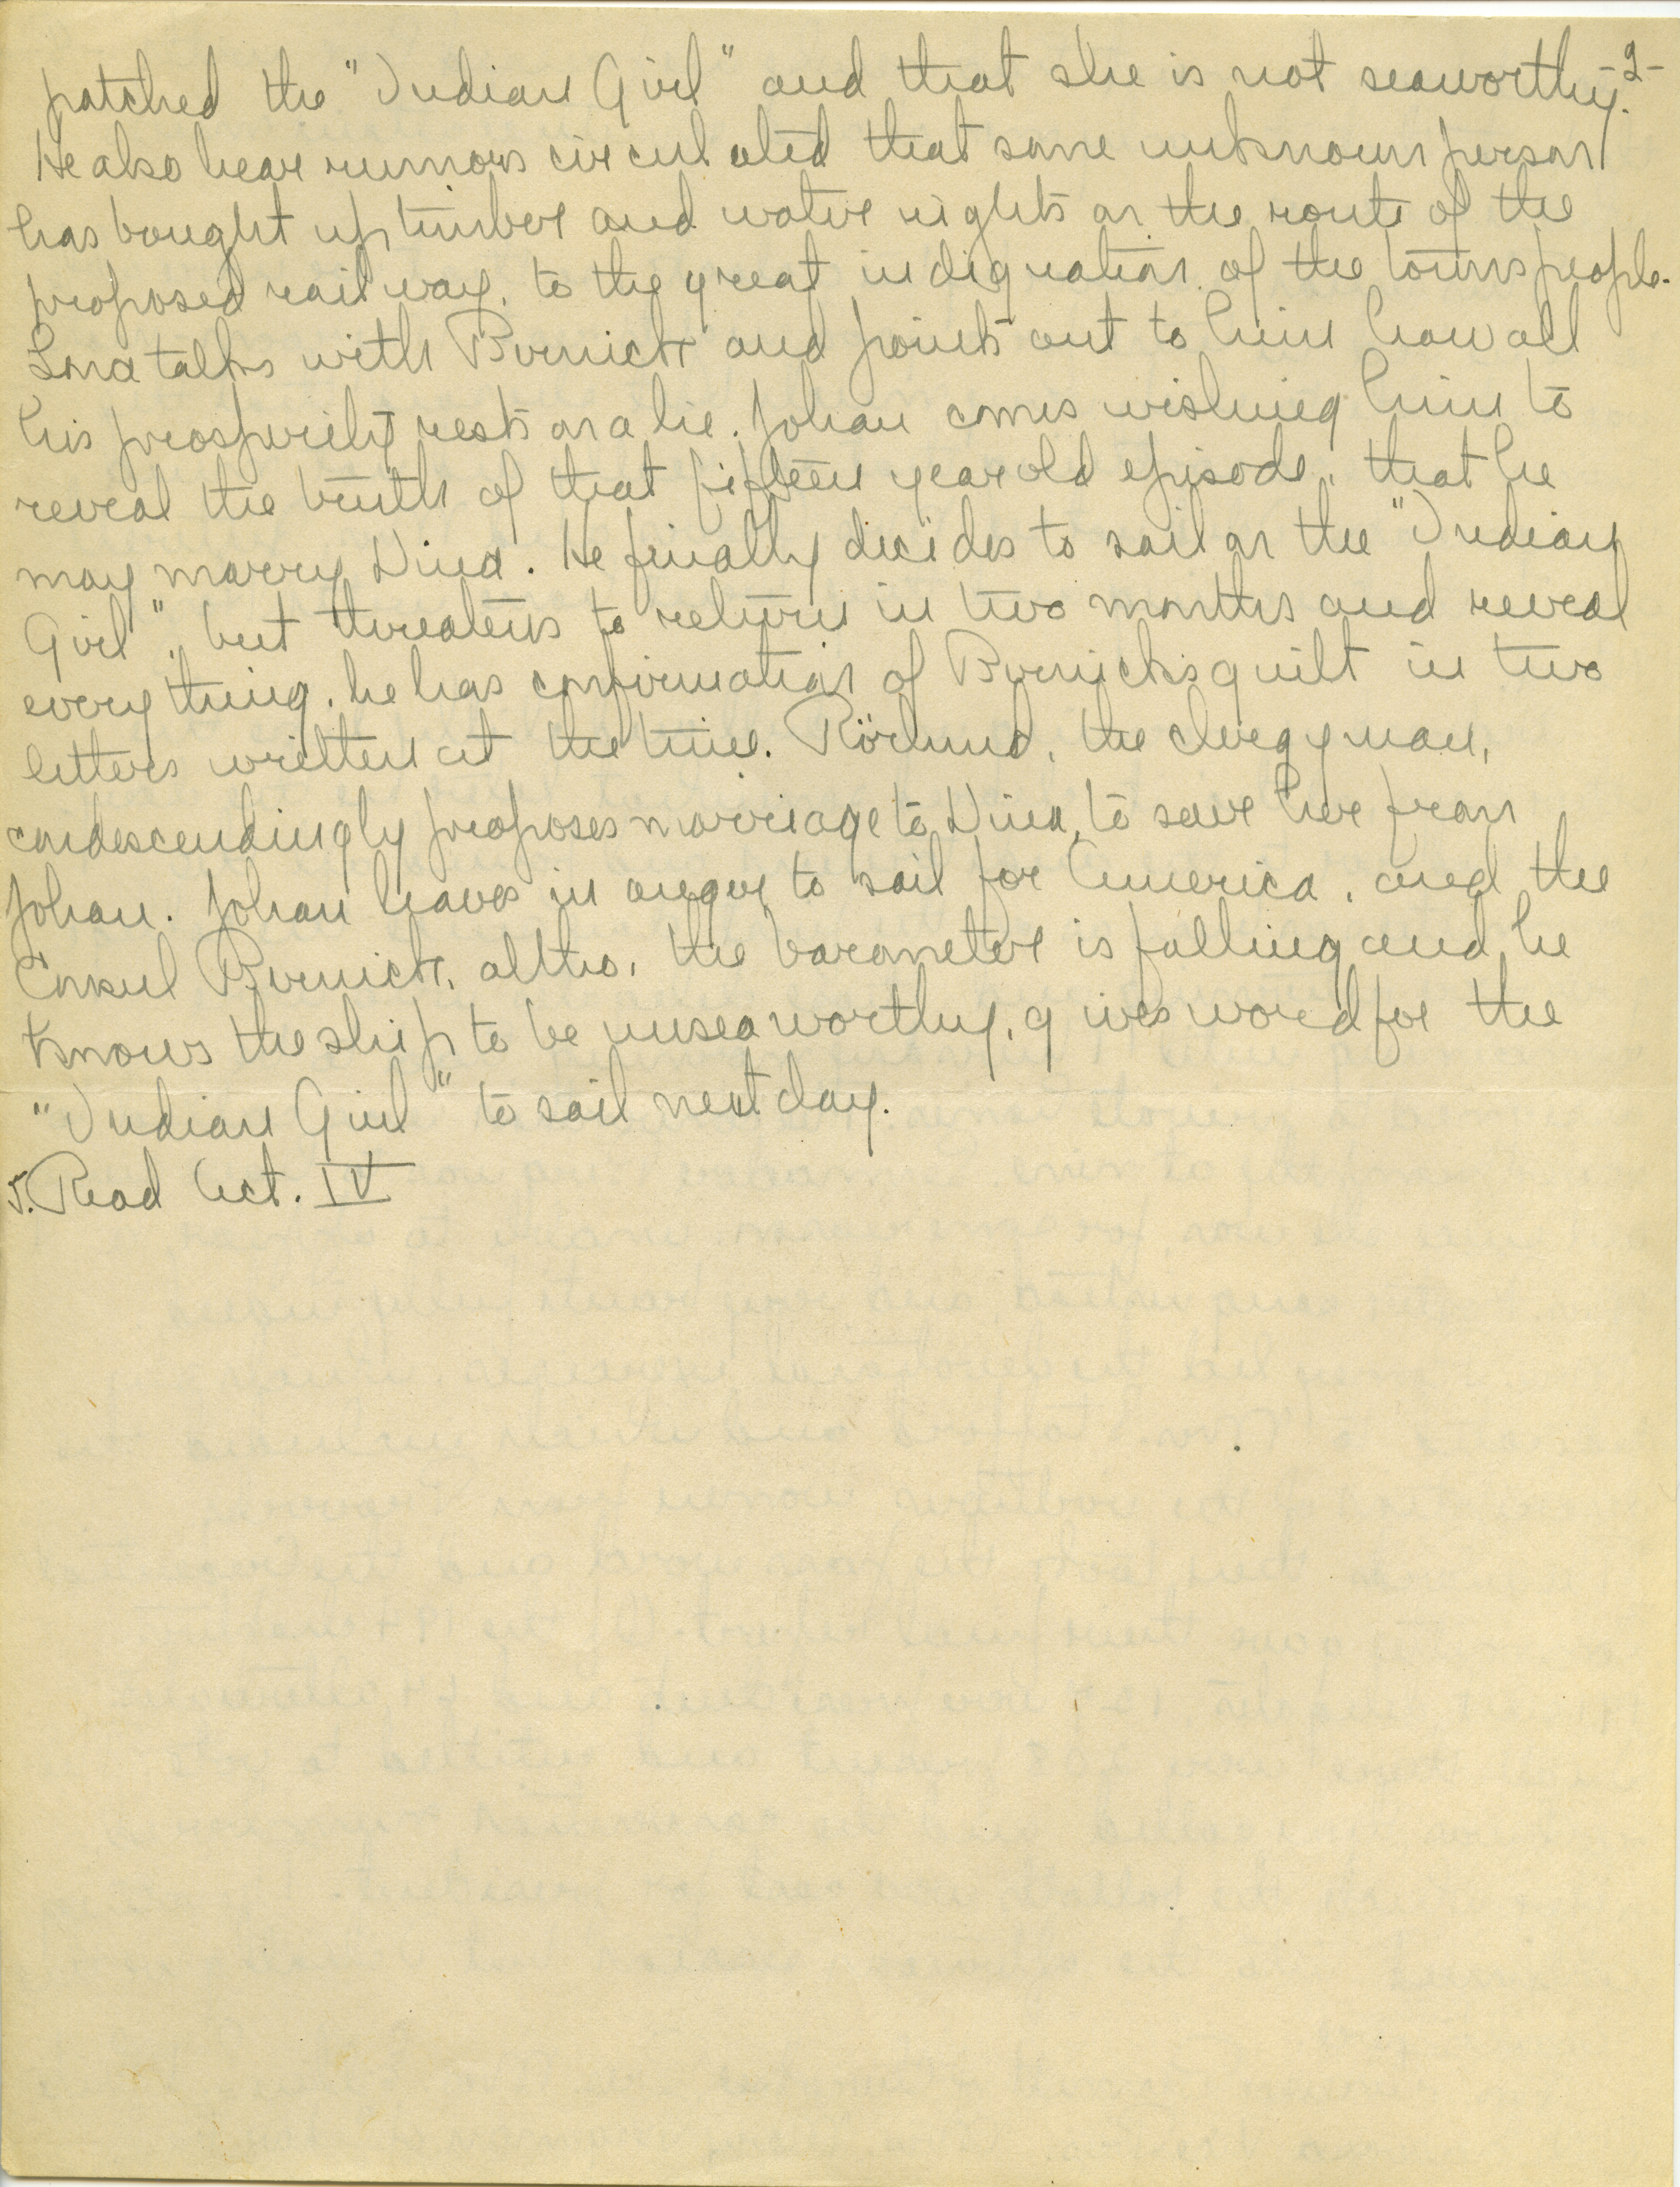 -2-
patched the "Indian Girl" and that she is not seaworthy.
He also hear rumors circulated that some unknown person
has bought up timber and water rights on the route of the
proposed railway, to the great indignation of the townspeople.
Lona talks with Bernick and points out to him how all
his prosperity rests on a lie. Johan comes wishing him to
reveal the truth of that fifteen year old episode, that he
may marry Dina. He finally decides to sail on the "Indian
Girl", but threatens to return in two months and reveal
everything, he has confirmation of Bernick's guilt in two
letters written at the time. Rörlund, the clergyman,
condescendingly proposes marriage to Dina, to save her from
Johan. Johan leaves in anger to sail for America, and the
Consul Bernick, altho, the barometer is falling and he
knows the ship to be unseaworthy, gives word for the
"Indian Girl" to sail next day.
5. Read Act. IV